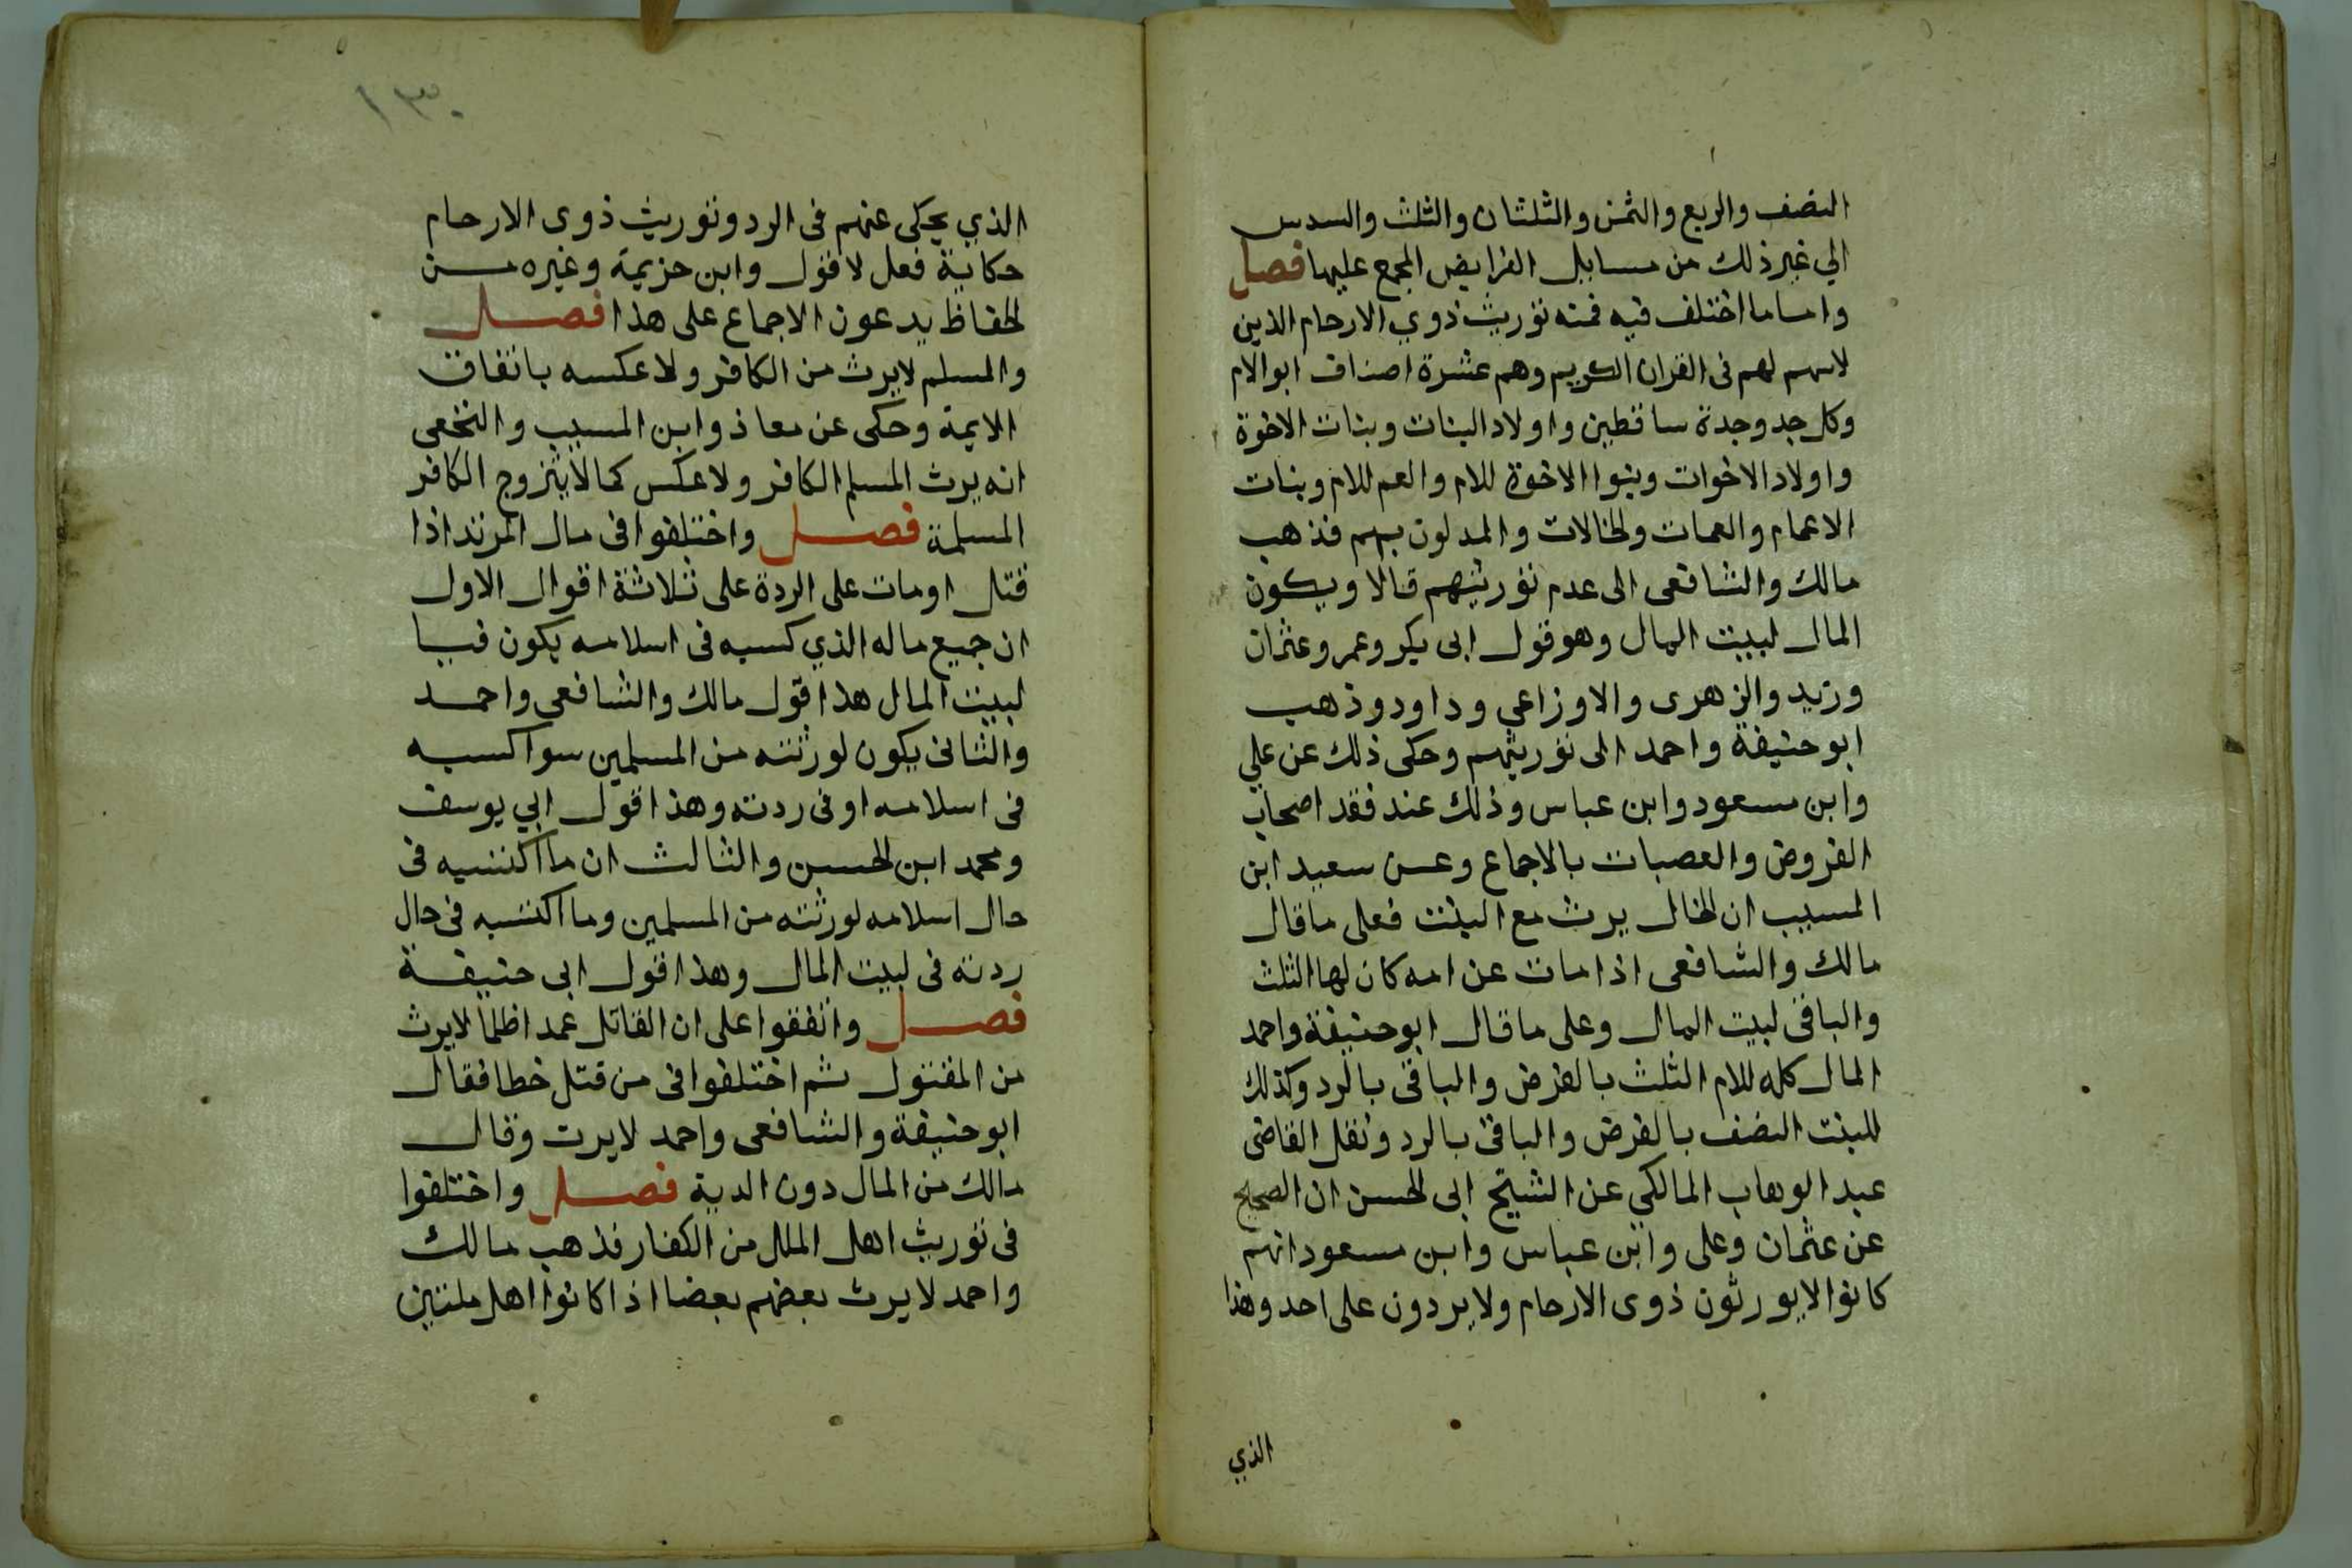 النصف والربع والثمن والثلثان والثلث والسدس
الي غير ذلك من مسايل الفرايض المجمع عليها فصل
واما ما اختلف فيه فمنه توريث ذوي الارحام الذين
لاسهم لهم فى القران الكريم وهم عشرة اصناف ابو الام
وكل جد وجدة ساقطين واولاد البنات وبنات الاخوة
واولاد الاخوات وبنوا الاخوة للام والعم للام وبنات
الاعمام والعمات والخالات والمدلون بهم فذهب
مالك والشافعى الى عدم توريثهم قالا ويكون
المال لبيت المال وهو قول ابى بكر وعمر وعثمان
وزيد والزهرى والاوزاعي وداود وذهب
ابو حنيفة واحمد الى توريثهم وحكى ذلك عن علي
وابن مسعود وابن عباس وذلك عند فقد اصحاب
الفروض والعصبات بالاجماع وعن سعيد ابن
المسيب ان الخال يرث مع البنت فعلى ما قال
مالك والشافعى اذا مات عن امه كان لها الثلث
والباقى لبيت المال وعلى ما قال ابو حنيفة واحمد
المال كله للام الثلث بالفرض والباقى بالرد وكذلك
للبنت النصف بالفرض والباقى بالرد ونقل القاضى
عبد الوهاب المالكي عن الشيخ ابى الحسن ان الصحيح
عن عثمان وعلى وابن عباس وابن مسعود انهم
كانوا لايورثون ذوى الارحام ولايردون على احد وهذا
الذي
١٣٠
الذي يحكى عنهم فى الرد وتوريث ذوى الارحام
حكاية فعل لا قول وابن خزيمة وغيره من
الحفاظ يدعون الاجماع على هذا فصل
والمسلم لايرث من الكافر ولا عكسه باتفاق
الايمة وحكى عن معاذ وابن المسيب والنخعى
انه يرث المسلم الكافر ولا عكس كما لايتزوج الكافر
المسلمة فصل واختلفوا فى مال المرتد اذا
قتل او مات على الردة على ثلاثة اقوال الاول
ان جميع ماله الذي كسبه فى اسلامه يكون فيا
لبيت المال هذا قول مالك والشافعي واحمد
والثانى يكون لورثته من المسلمين سوا كسبه
فى اسلامه او فى ردته وهذا قول ابي يوسف
ومحمد ابن الحسن والثالث ان ما اكتسبه فى
حال اسلامه لورثته من المسلمين وما اكتسبه فى حال
ردته فى لبيت المال وهذا قول ابى حنيفة
فصل واتفقوا على ان القاتل عمدا ظلما لايرث
من المقتول ثم اختلفوا فى من قتل خطا فقال
ابو حنيفة والشافعى واحمد لايرث وقال
مالك من المال دون الدية فصل واختلفوا
فى توريث اهل الملل من الكفار فذهب مالك
واحمد لايرث بعضهم بعضا اذا كانوا اهل ملتين